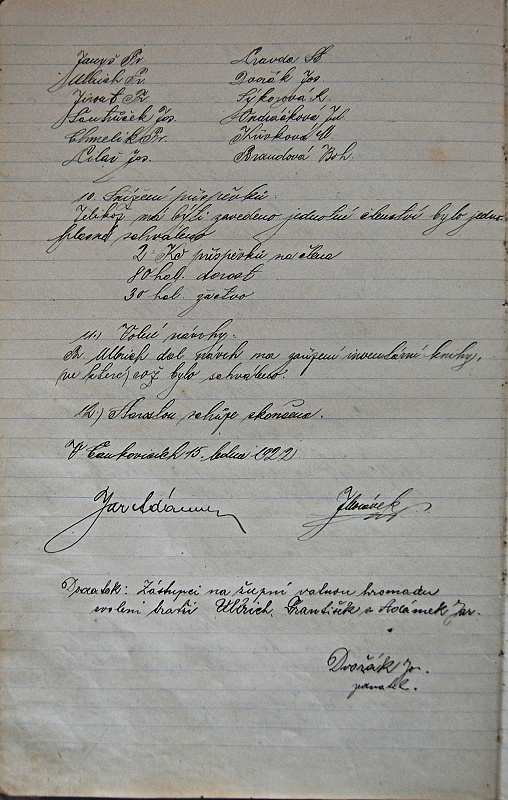 Janyš Fr.
Ullrich Fr.
Jirout Fr.
Jos.
Chmelík Fr.
Jos.
Dvořák Jos.
Sýkorová R.
Ondráčková Jul.
Kůrková M.
Brandová Boh.
10. Snížení příspěvků.
Jelikož má býti zavedeno jednotné členství bylo jedno-
hlasně schváleno
2 Kč příspěvků na člena
80 hal. dorost
30 hal. žactvo
11.) Volné návrhy.
Br. Ullrich dal návrh na zařízení inventární knihy,
což bylo schváleno.
12.) schůze skončena.
V 15. ledna 1922
Jar. Adámek
Dodatek: Zástupci na župní valnou hromadu
zvoleni bratří Ullrich František a Adámek Jar.
Dvořák Jos.